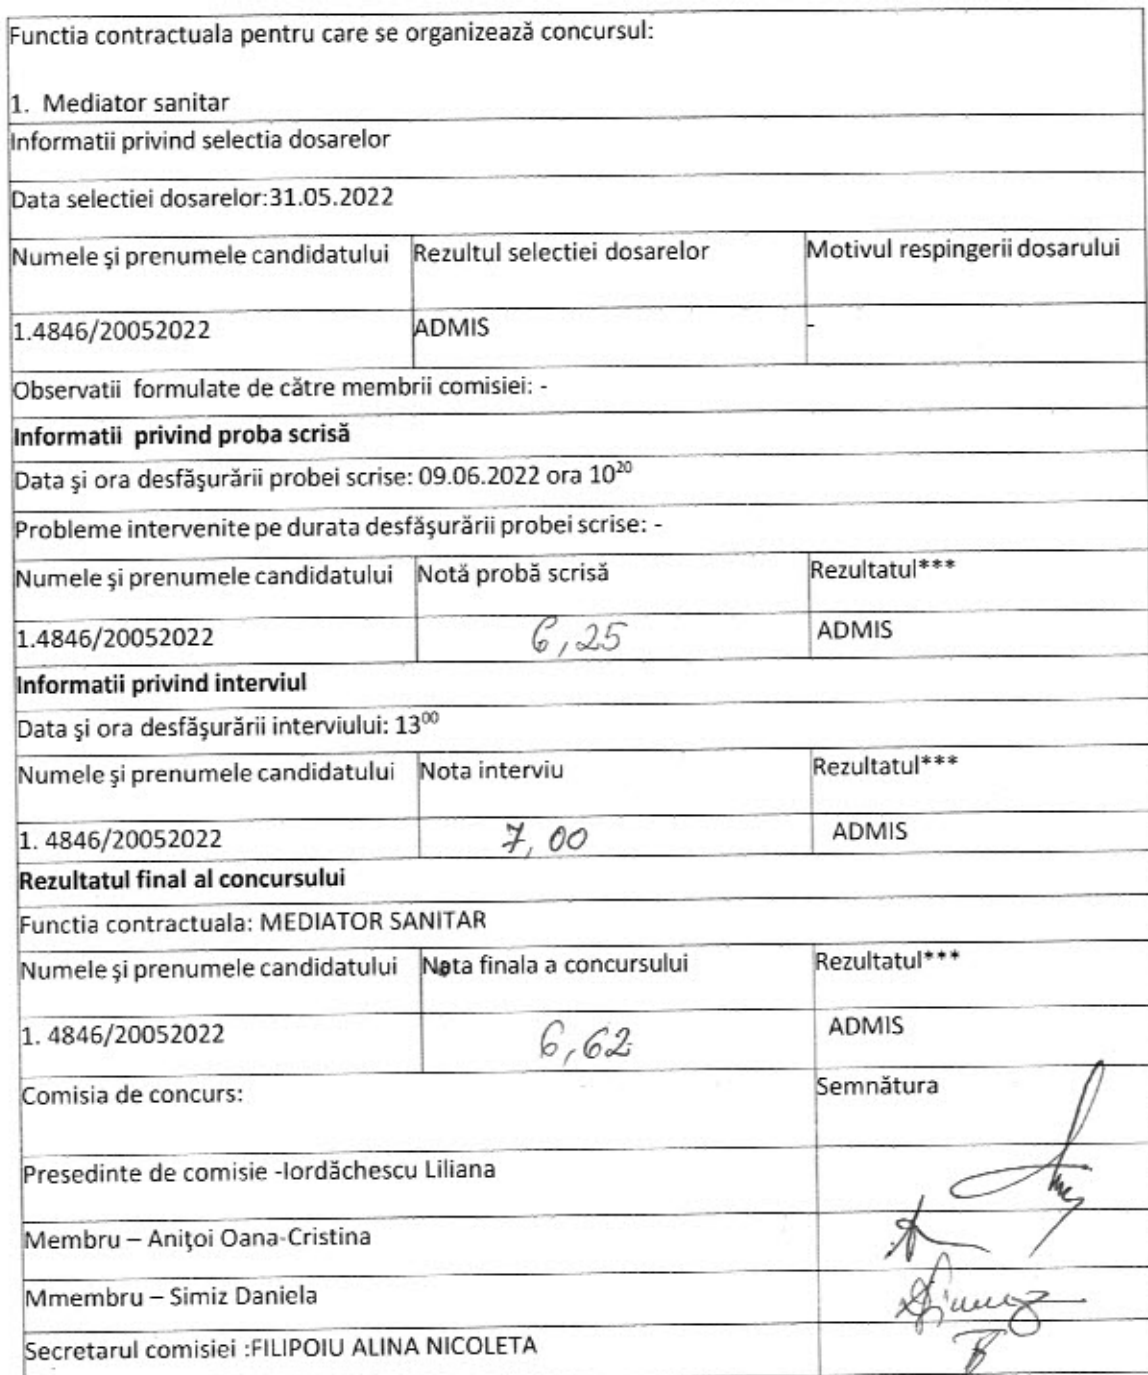 Functia contractuala pentru care se organizează concursul:
1. Mediator sanitar
Informatii privind selectia dosarelor
Data selectiei dosarelor:31.05.2022
Numele şi prenumele candidatului Rezultul selectiei dosarelor Motivul respingerii dosarului
1.4846/20052022 ADMIS -
Observatii formulate de către membrii comisiei: -
Informatii privind proba scrisă
Data şi ora desfăşurării probei scrise: 09.06.2022 ora 10²⁰
Probleme intervenite pe durata desfăşurării probei scrise: -
Numele şi prenumele candidatului Notă probă scrisă Rezultatul***
1.4846/20052022 6,25 ADMIS
Informatii privind interviul
Data şi ora desfăşurării interviului: 13⁰⁰
Numele şi prenumele candidatului Nota interviu Rezultatul***
1. 4846/20052022 7,00 ADMIS
Rezultatul final al concursului
Functia contractuala: MEDIATOR SANITAR
Numele şi prenumele candidatului Nota finala a concursului Rezultatul***
1. 4846/20052022 6,62 ADMIS
Comisia de concurs: Semnătura
Presedinte de comisie -Iordăchescu Liliana
Membru – Aniţoi Oana-Cristina
Mmembru – Simiz Daniela
Secretarul comisiei :FILIPOIU ALINA NICOLETA